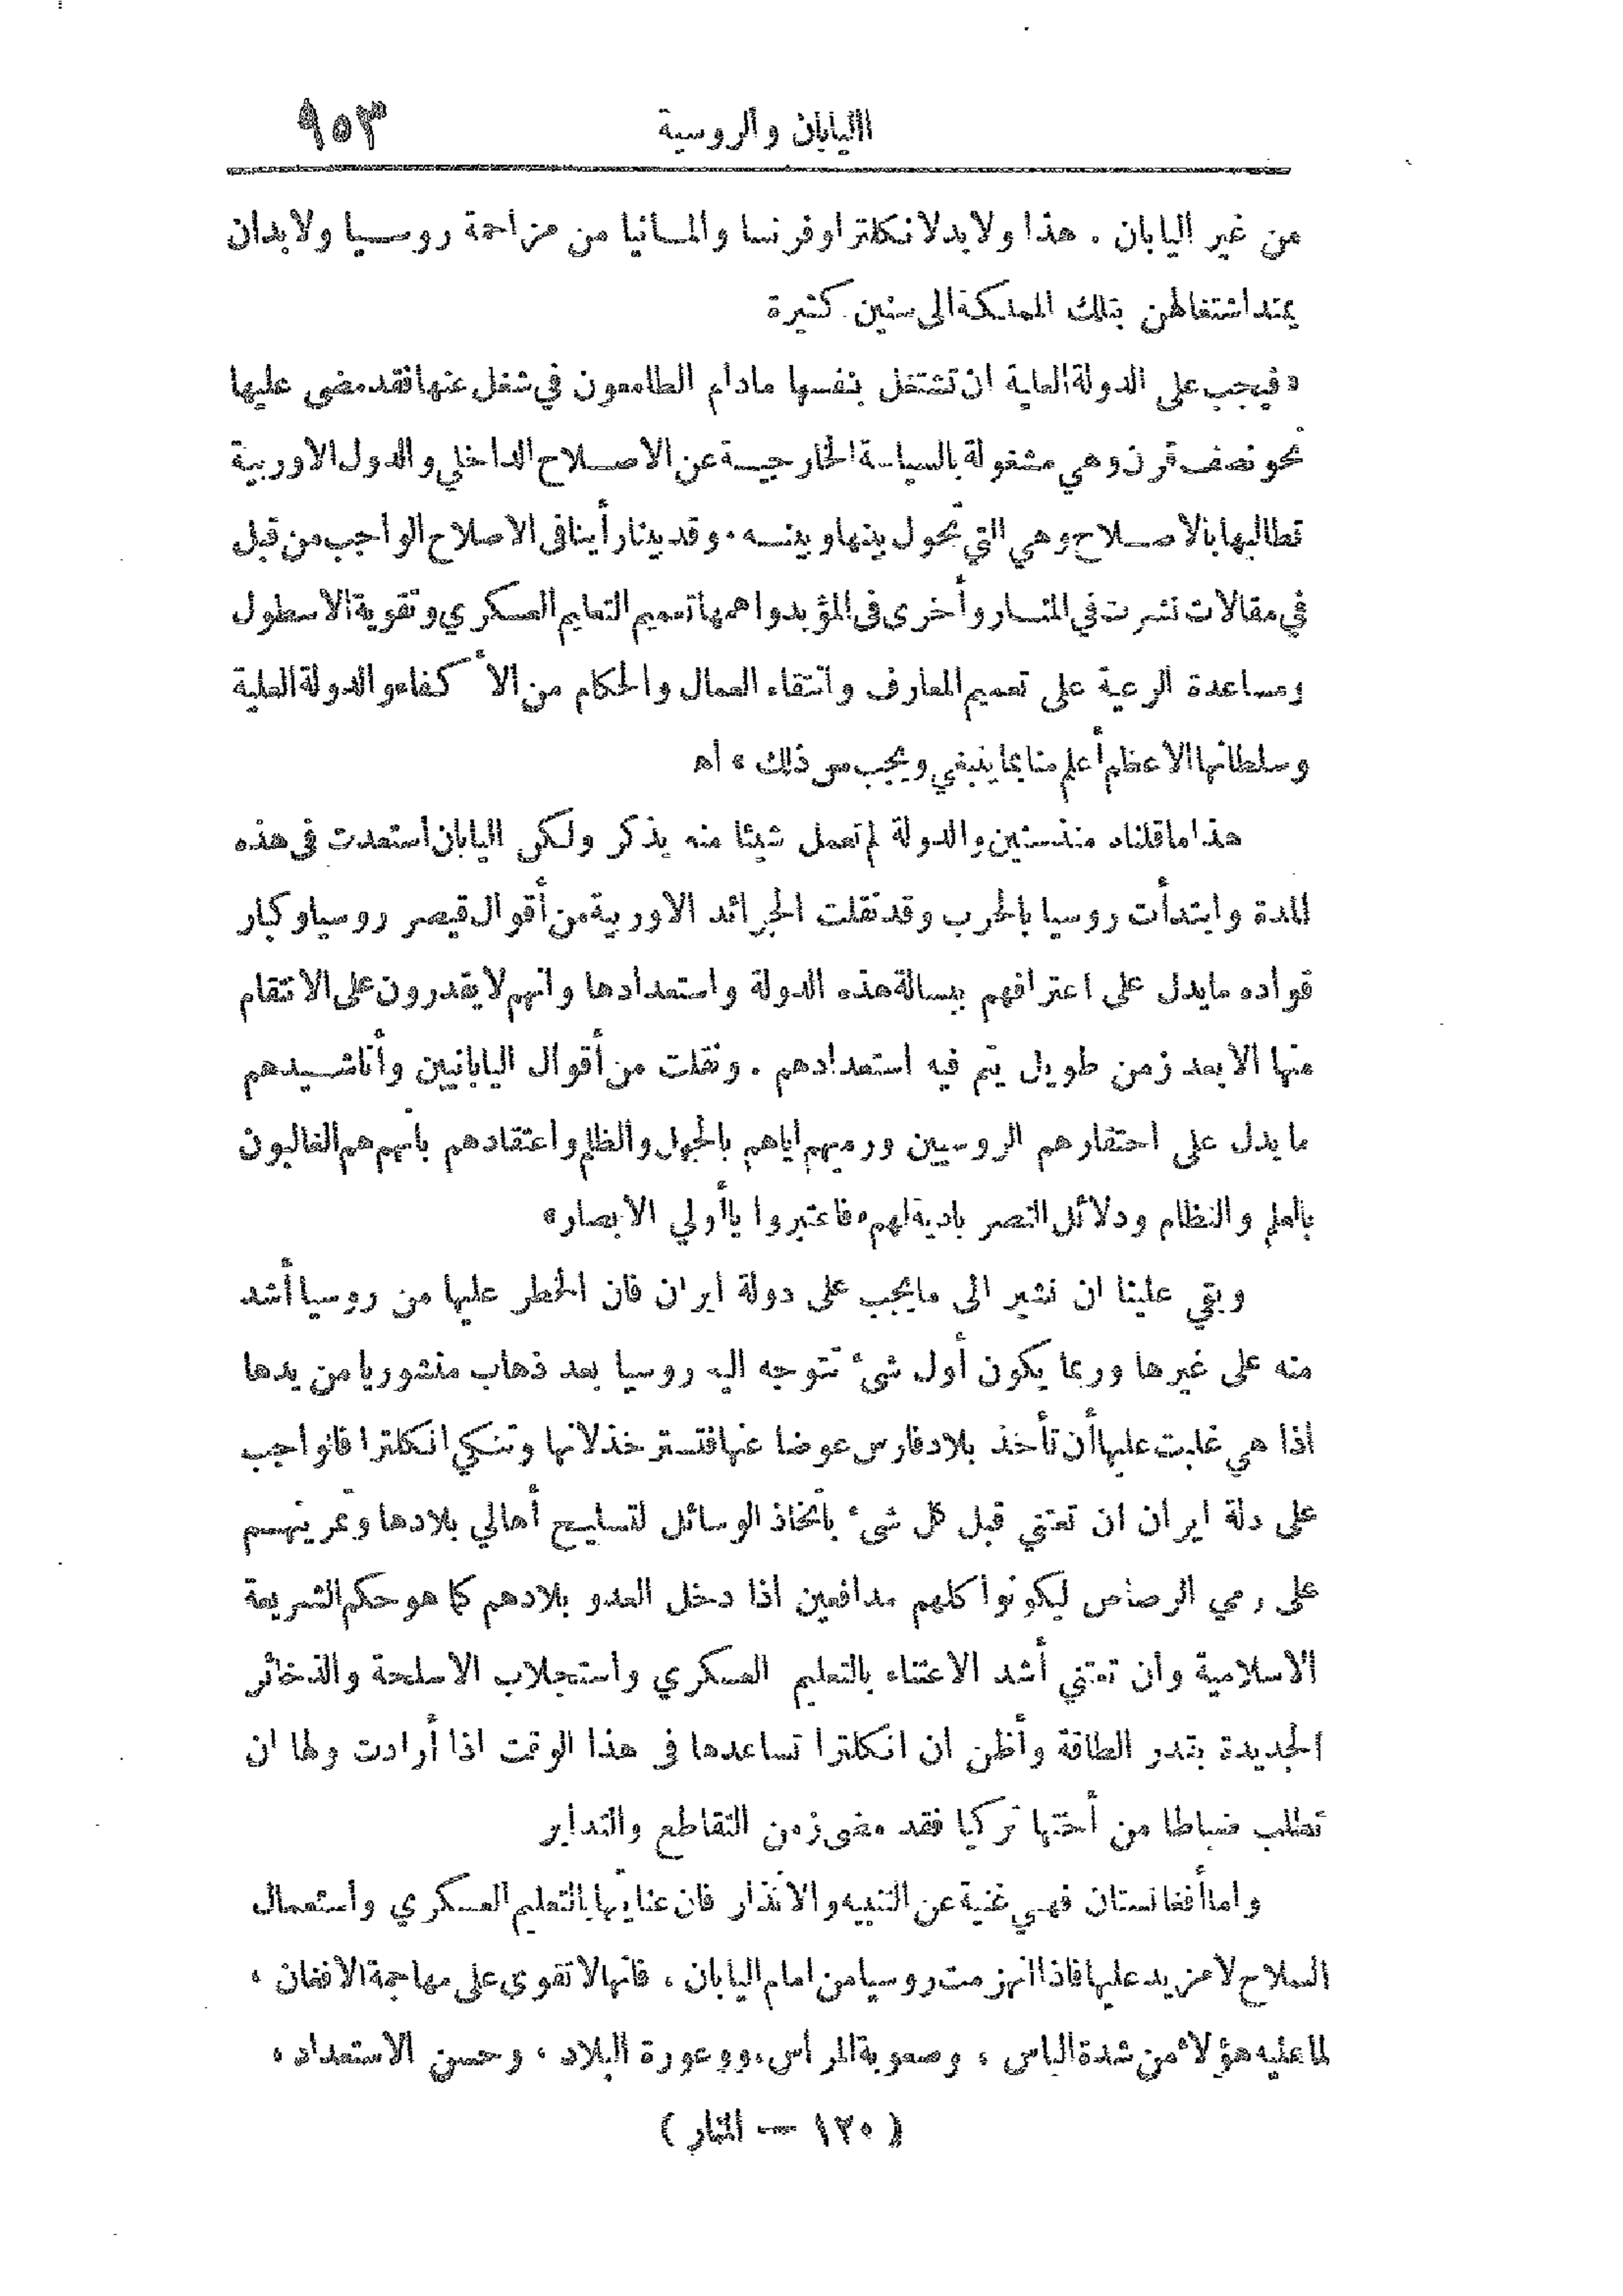 اليابان والروسية
٩٥٣
من غير اليابان . هذا ولا بد لانكلترا وفرنسا والمانيا من مزاحمة روسيا ولا بد ان
يمتد اشتغالهن بتلك المملكة الى سنين كثيرة
« فيجب على الدولة العلية ان تشتغل بنفسها مادام الطامعون في شغل عنها فقد مضى عليها
نحو نصف قرن وهي مشغولة بالسياسة الخارجية عن الاصلاح الداخلي والدول الاوربية
تطالبها بالاصلاح وهي التي تحول بينها وبينه . وقد بينا رأينا في الاصلاح الواجب من قبل
في مقالات نشرت في المنار وأخرى في المؤيد واهمها تعميم التعليم العسكري وتقوية الاسطول
ومساعدة الرعية على تعميم المعارف وانتقاء العمال والحكام من الأكفاء والدولة العلية
وسلطانها الاعظم أعلم منا بما ينبغي ويجب من ذلك » اه
هذا ما قلناه منذ سنين والدولة لم تعمل شيئا منه يذكر ولكن اليابان استعدت في هذه
المدة وابتدأت روسيا بالحرب وقد نقلت الجرائد الاوربية من أقوال قيصر روسيا وكبار
قواده مايدل على اعترافهم ببسالة هذه الدولة واستعدادها وانهم لا يقدرون على الانتقام
منها الا بعد زمن طويل يتم فيه استعدادهم . ونقلت من أقوال اليابانيين وأناشيدهم
ما يدل على احتقارهم الروسيين ورميهم اياهم بالجهل والظلم واعتقادهم بأنهم هم الغالبون
بالعلم والنظام ودلائل النصر بادية لهم « فاعتبروا ياأولي الابصار »
وبقي علينا ان نشير الى مايجب على دولة ايران فان الخطر عليها من روسيا أشد
منه على غيرها وربما يكون أول شئ تتوجه اليه روسيا بعد ذهاب منشوريا من يدها
اذا هي غلبت عليها أن تأخذ بلاد فارس عوضا عنها فتستر خذلانها وتنكي انكلترا فالواجب
على دلة ايران ان تعتني قبل كل شئ باتخاذ الوسائل لتسليح أهالي بلادها وتمرينهم
على رمي الرصاص ليكونوا كلهم مدافعين اذا دخل العدو بلادهم كما هو حكم الشريعة
الاسلامية وان تعتني أشد الاعتناء بالتعليم العسكري واستجلاب الاسلحة والذخائر
الجديدة بقدر الطاقة وأظن ان انكلترا تساعدها في هذا الوقت اذا أرادت ولها ان
تطلب ضباطا من أختها تركيا فقد مضى زمن التقاطع والتدابر
واما أفغانستان فهي غنية عن التنبيه والانذار فان عنايتها بالتعليم العسكري واستعمال
السلاح لا مزيد عليها فاذا انهزمت روسيا من امام اليابان ، فانها لا تقوى على مهاجمة الافغان ،
لما عليه هؤلاء من شدة الباس ، وصعوبة المراس ، ووعورة البلاد ، وحسن الاستعداد ،
( ١٢٠ — المنار )